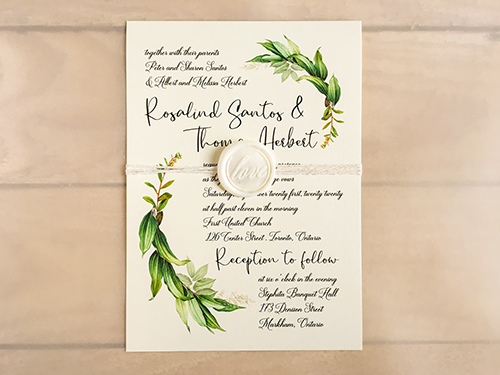 together with their parents
Peter and Sharon Santos
& Albert and Melissa Herbert
Rosalind Santos &
Herbert
love
as the
vows
twenty first, twenty twenty
at half past eleven in the morning
First United Church
126 Center Street, Toronto, Ontario
Reception to follow
at six o'clock in the evening
Stephita Banquet Hall
173 Denison Street
Markham, Ontario